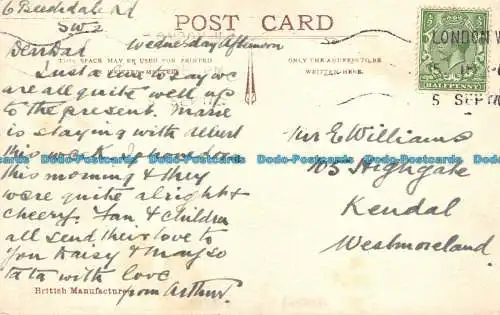 6 Beechdale Rd
SW2
POST CARD
Dear Dad Wednesday Afternoon
THIS SPACE MAY BE USED FOR PRINTED
ONLY THE ADDRESS TO BE
WRITTEN HERE.
Just a line to say we
are all quite well up
to the present. Marie
is staying with
this week
this morning & they
were quite alright &
cheery. Fan & Children
all send their love to
You Daisy & May so
ta ta with love
from Arthur.
British Manufacture
Mr E Williams
105 Highgate
Kendal
Westmoreland.
LONDON W
5 SEP
HALFPENNY
Dodo-Postcards Dodo-Postcards Dodo-Postcards Dodo-Postcards Dodo-Postcards